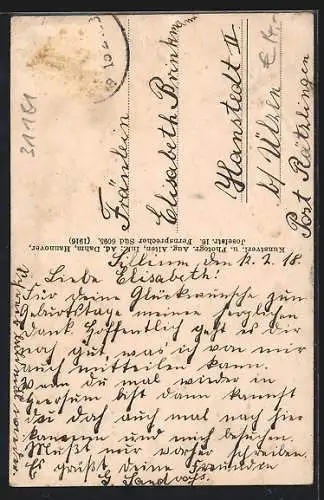 Fräulein
Elisabeth Brinkmann
Hanstedt II
b/ Ülzen
Post Rätzlingen
31161
Kunstverl. u. Photogr. Aug. Alten, Inh.: Ad. Dahm, Hannover,
Josefstr. 16. Fernsprecher Süd 6095. (1916)
Sillium, den 12.2.18
Liebe Elisabeth!
Für deine Glückwünsche zum
Geburtstage meinen herzlichen
Dank. Hoffentlich geht es dir
noch gut, was ich von mir
auch mitteilen kann.
Wenn du mal wieder in
bist dann kannst
du doch auch mal nach hier
kommen und mich besuchen.
Mußt mir vorher schreiben.
Es grüßt deine Freundin